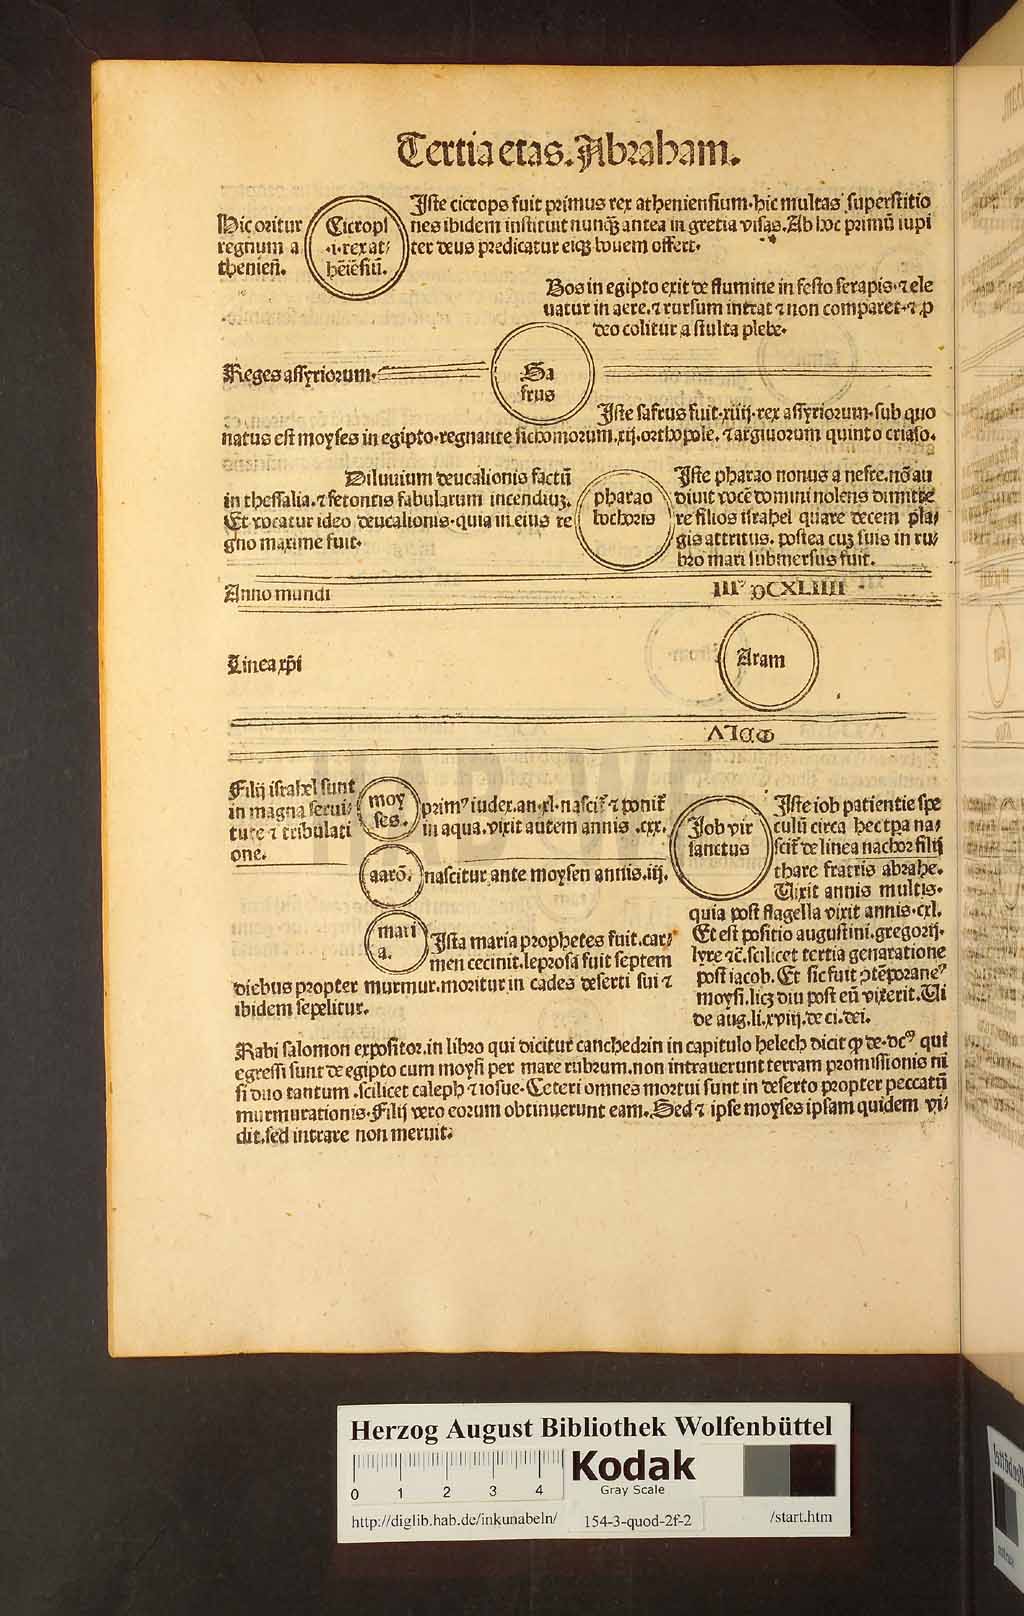 Tertia etas. Abraham.
Hic oritur
regnum a
thenien̄.
Cicropl
·i·rex at/
hēiēsiū.
Iste cicrops fuit primus rex atheniensium·hic multas superstitio
nes ibidem instituit nunqꝫ antea in gretia visas. Ab hoc primū iupi
ter deus predicatur eiqꝫ bouem offert·
Bos in egipto exit de flumine in festo serapis·⁊ ele
uatur in aere.⁊ rursum intrat ⁊ non comparet·⁊ ꝓ
deo colitur a stulta plebe·
Reges assyriorum·
Sa
frus
Iste safrus fuit·xiiij·rex assyriorum·sub quo
natus est moyses in egipto·regnante sichomorum.xij.orthopole.⁊ argiuorum quinto criaso.
Diluuium deucalionis factū
in thessalia.⁊ fetontis fabularum incendiuꝫ.
Et vocatur ideo deucalionis·quia in eius re
gno maxime fuit·
pharao
bochoris
Iste pharao nonus a nefre.nō au
diuit vocē domini nolens dimitte
re filios israhel quare decem pla/
gis attritus. postea cuꝫ suis in ru/
bro mari submersus fuit.
Anno mundi
IIIᵐ DCXLIIII
Linea xp̄i
Aram
ꟺDLV
Filij israhel sunt
in magna serui/
ture ⁊ tribulati
one.
moy
ses.
primꝰ iudex.an·xl·nascit̄ ⁊ ponit̄
in aqua.vixit autem annis .cxx.
aarō.
nascitur ante moysen annis.iij.
mari
a.
Ista maria prophetes fuit.car/
men cecinit.leprosa fuit septem
diebus propter murmur.moritur in cades deserti sui ⁊
ibidem sepelitur.
Iob vir
sanctus
Iste iob patientie spe
culū circa hec tpa na/
scit̄ de linea nachor filij
thare fratris abrahe.
Vixit annis multis·
quia post flagella vixit annis·cxl.
Et est positio augustini.gregorij.
lyre ⁊c̄.scilicet tertia genaratione
post iacob. Et sic fuit ꝯtēporaneꝰ
moysi.licꝫ diu post eū vixerit. Vi
de aug.li.xviij.de ci.dei.
Rabi salomon expositor.in libro qui dicitur canchedrin in capitulo helech dicit ꝙ de·dcꝰ qui
egressi sunt de egipto cum moysi per mare rubrum.non intrauerunt terram promissionis ni
si duo tantum .scilicet caleph ⁊ iosue·Ceteri omnes mortui sunt in deserto propter peccatū
murmurationis·Filij vero eorum obtinuerunt eam.Sed ⁊ ipse moyses ipsam quidem vi/
dit.sed intrare non meruit.
HAB WF
Herzog August Bibliothek Wolfenbüttel
0 1 2 3 4
Kodak
Gray Scale
http://diglib.hab.de/inkunabeln/ 154-3-quod-2f-2 /start.htm